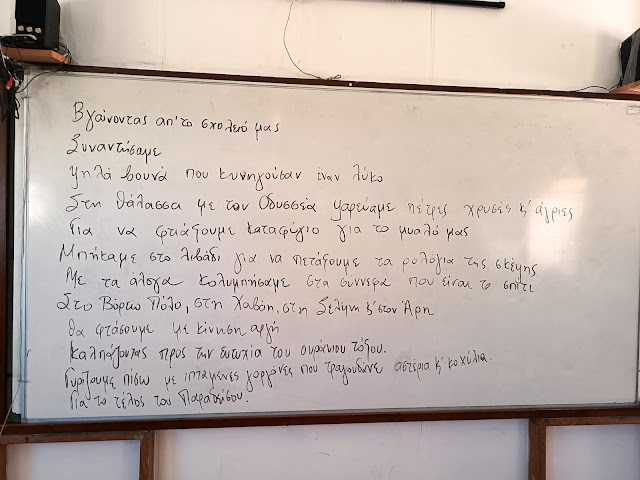 Βγαίνοντας απ' το σχολειό μας
Συναντήσαμε
Ψηλά βουνά που κυνηγούσαν έναν λύκο
Στη θάλασσα με τον Οδυσσέα ψαρεύαμε πέτρες χρυσές κ' άγριες
Για να φτιάξουμε καταφύγιο για το μυαλό μας
Μπήκαμε στο λιβάδι για να πετάξουμε τα ρολόγια της σκέψης
Με τα άλογα κολυμπήσαμε στα σύννεφα που είναι το σπίτι
Στο Βόρειο Πόλο, στη Χαβάη, στη Σελήνη κ' στον Άρη
Θα φτάσουμε με κίνηση αργή
Καλπάζοντας προς την ευτυχία του ουράνιου τόξου.
Γυρίζουμε πίσω με ιπτάμενες γοργόνες που τραγουδάνε αστέρια κ' κοχύλια.
Για το τέλος του Παραδείσου.